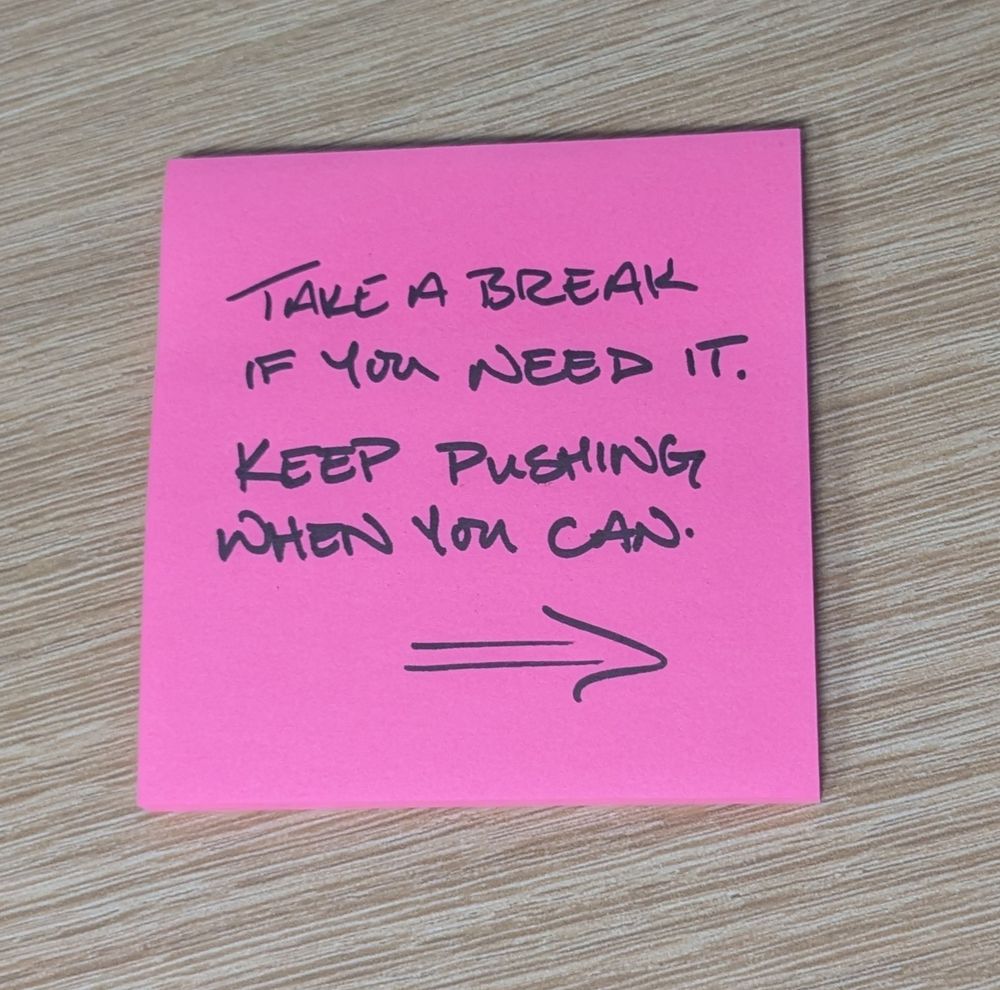 TAKE A BREAK
IF YOU NEED IT.
KEEP PUSHING
WHEN YOU CAN.